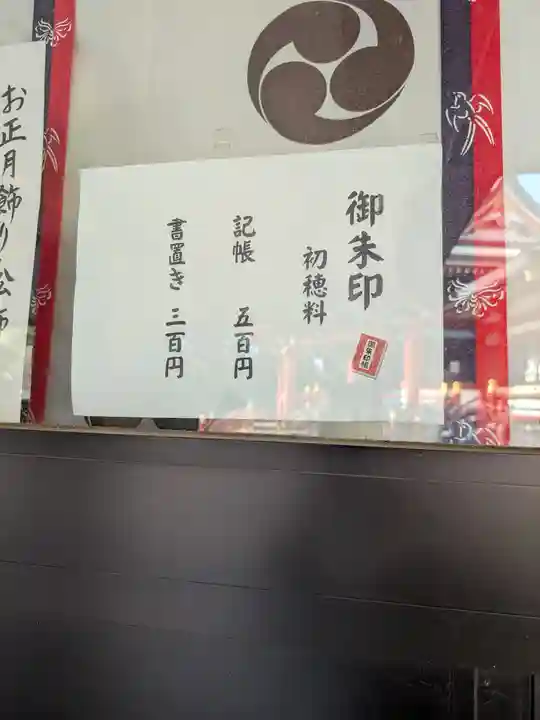 御朱印
初穂料
御朱印帳
記帳 五百円
書置き 三百円
お正月飾り、松